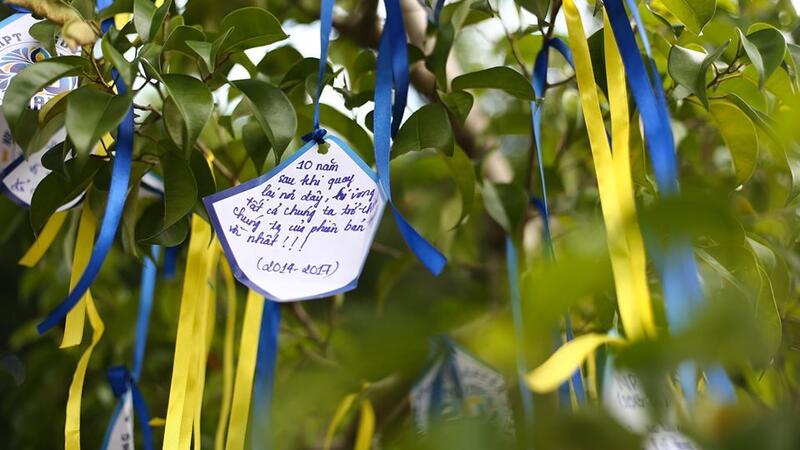 HPT
10 năm
sau khi quay
lại nơi đây, hi vọng
tất cả chúng ta trở
chúng ta của phiên bản
nhất!!!
(2014-2017)